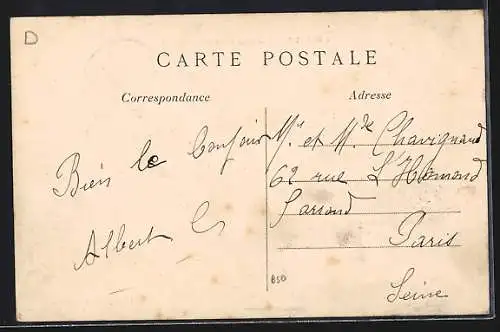 D
CARTE POSTALE
Correspondance
Adresse
Bien le bonjour
Albert
Mr et Mde Chavignaud
62 rue L'Homond
Paris
Seine
850